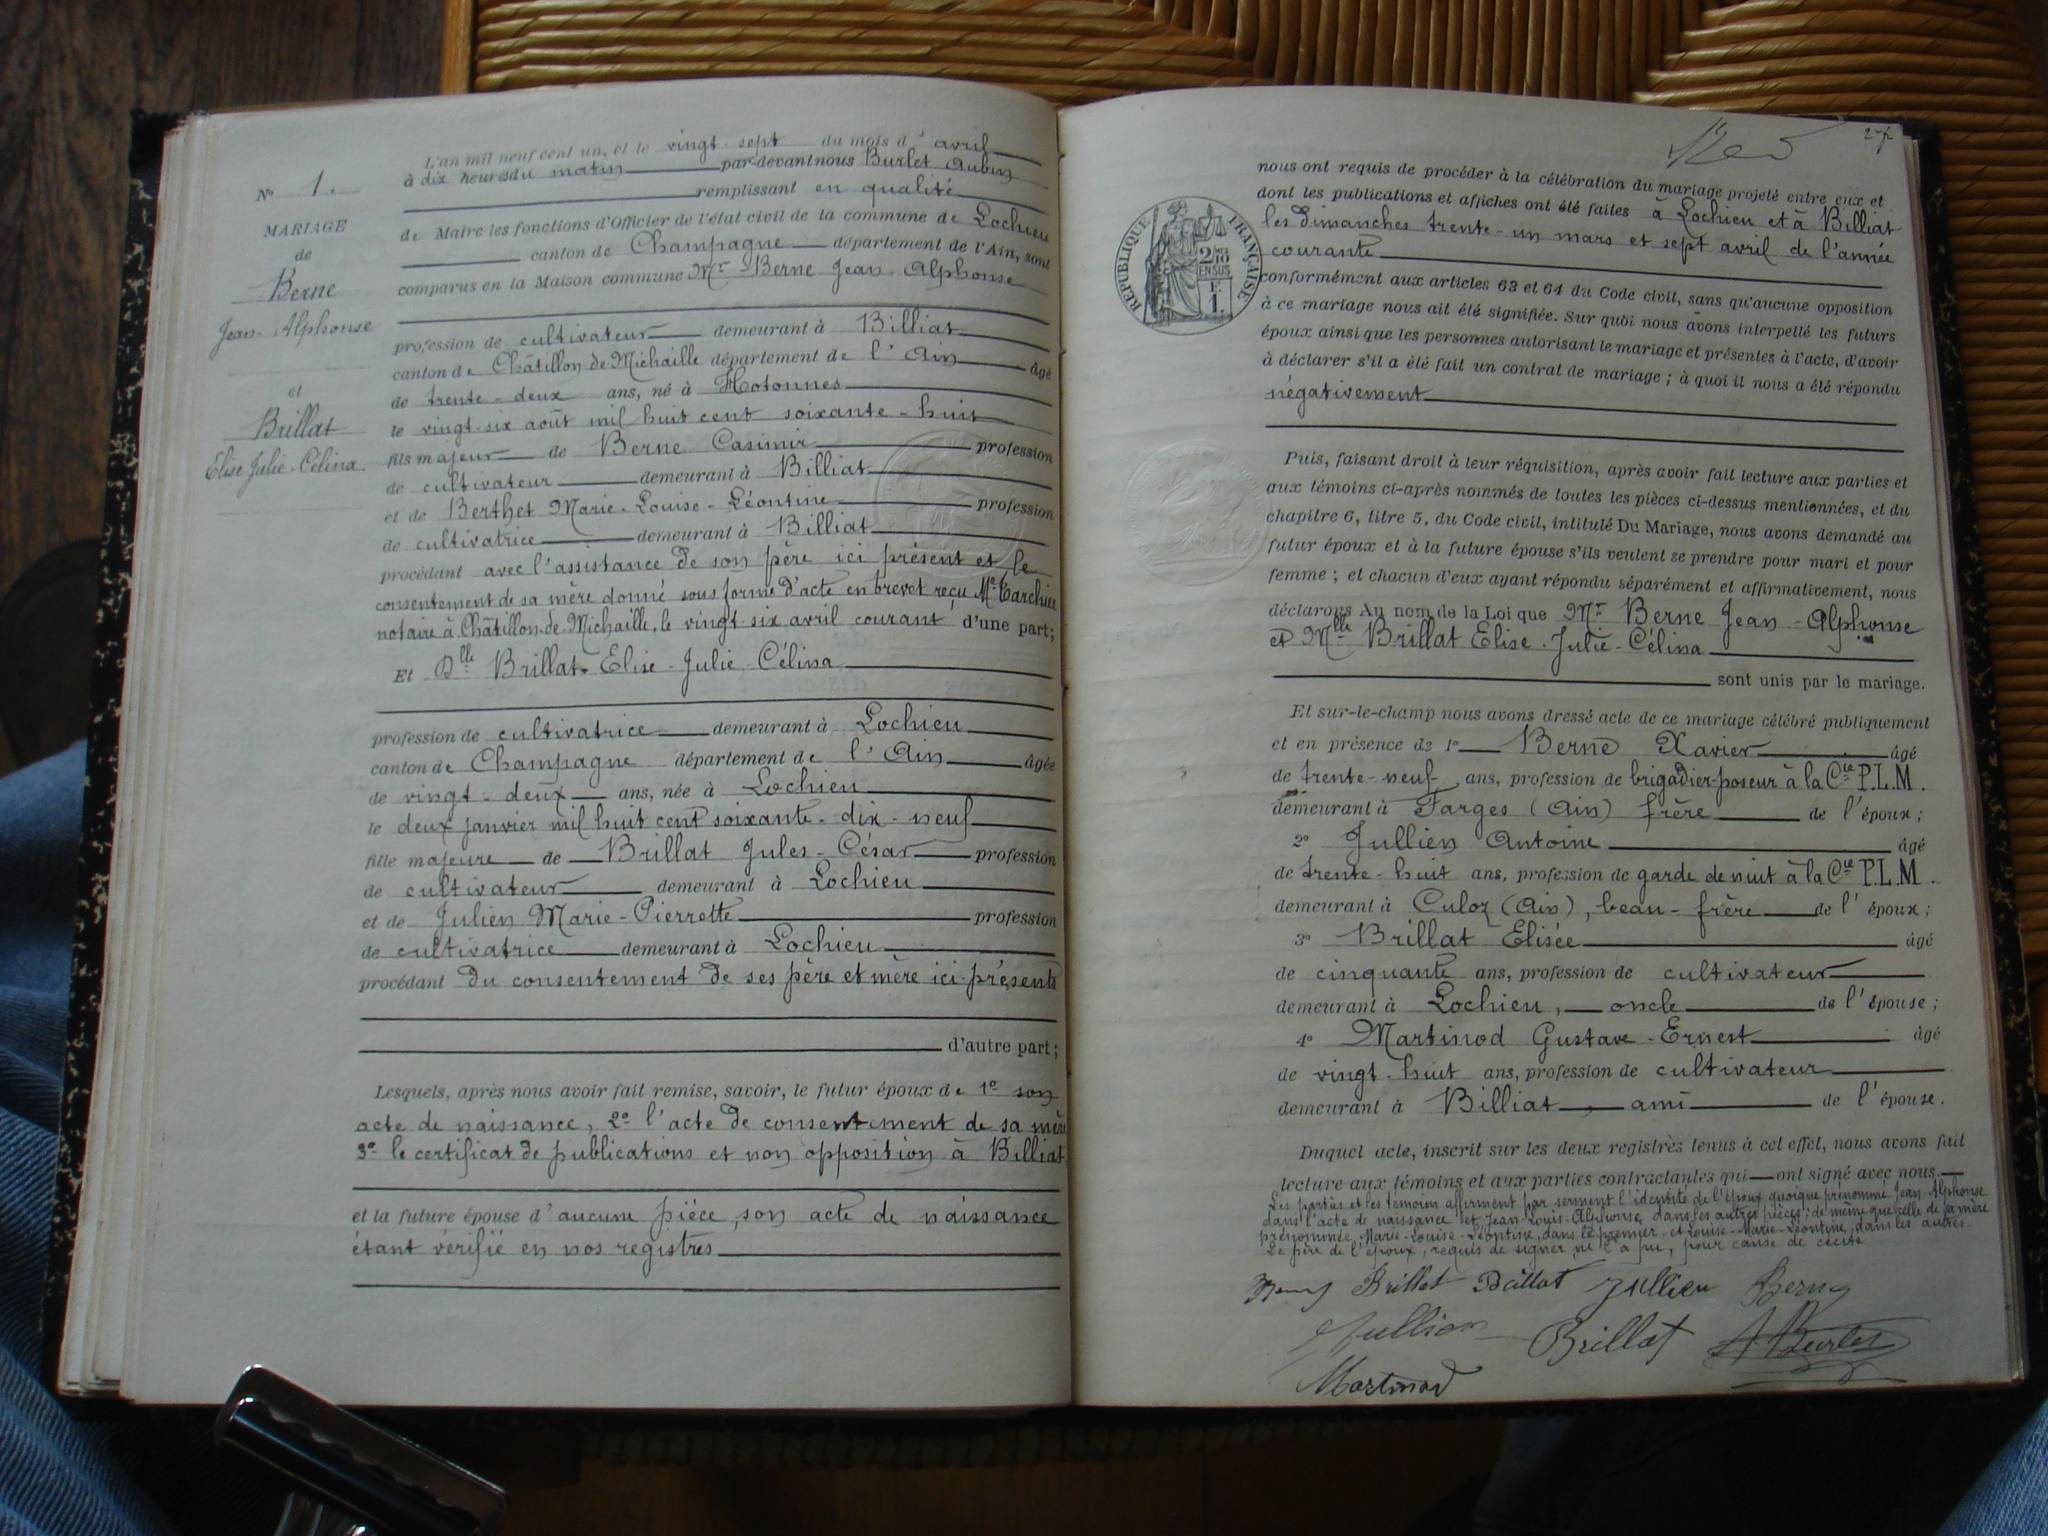 N° 1.
MARIAGE
de
Berne
Jean-Alphonse
et
Brillat
Elise-Julie-Célina.
L'an mil neuf cent un, et le vingt-sept du mois d'avril
à dix heures du matin par-devant nous Burlet Aubin
remplissant en qualité
de Maire les fonctions d'Officier de l'état civil de la commune de Lochieu
canton de Champagne département de l'Ain, sont
comparus en la Maison commune Mr Berne Jean-Alphonse
profession de cultivateur demeurant à Billiat
canton de Châtillon de Michaille département de l'Ain âgé
de trente-deux ans, né à Hotonnes
le vingt-six août mil huit cent soixante-huit
fils majeur de Berne Casimir profession
de cultivateur demeurant à Billiat
et de Berthet Marie-Louise-Léontine profession
de cultivatrice demeurant à Billiat
procédant avec l'assistance de son père ici présent et le
consentement de sa mère donné sous forme d'acte en brevet reçu Me
notaire à Châtillon-de-Michaille, le vingt-six avril courant d'une part;
Et Dlle Brillat Elise-Julie-Célina
profession de cultivatrice demeurant à Lochieu
canton de Champagne département de l'Ain âgée
de vingt-deux ans, née à Lochieu
le deux janvier mil huit cent soixante-dix-neuf
fille majeure de Brillat Jules-César profession
de cultivateur demeurant à Lochieu
et de Julien Marie-Pierrette profession
de cultivatrice demeurant à Lochieu
procédant du consentement de ses père et mère ici-présents
d'autre part;
Lesquels, après nous avoir fait remise, savoir, le futur époux de 1° son
acte de naissance, 2° l'acte de consentement de sa mère
3° le certificat de publications et non opposition à Billiat
et la future épouse d'aucune pièce, son acte de naissance
étant vérifié en nos registres
27
nous ont requis de procéder à la célébration du mariage projeté entre eux et
dont les publications et affiches ont été faites à Lochieu et à Billiat
les dimanches trente-un mars et sept avril de l'année
courante
RÉPUBLIQUE FRANÇAISE
2/10
EN SUS
F.
1.
conformément aux articles 63 et 64 du Code civil, sans qu'aucune opposition
à ce mariage nous ait été signifiée. Sur quoi nous avons interpellé les futurs
époux ainsi que les personnes autorisant le mariage et présentes à l'acte, d'avoir
à déclarer s'il a été fait un contrat de mariage; à quoi il nous a été répondu
négativement
Puis, faisant droit à leur réquisition, après avoir fait lecture aux parties et
aux témoins ci-après nommés de toutes les pièces ci-dessus mentionnées, et du
chapitre 6, titre 5, du Code civil, intitulé Du Mariage, nous avons demandé au
futur époux et à la future épouse s'ils veulent se prendre pour mari et pour
femme; et chacun d'eux ayant répondu séparément et affirmativement, nous
déclarons Au nom de la Loi que Mr Berne Jean-Alphonse
et Mlle Brillat Elise-Julie-Célina
sont unis par le mariage.
Et sur-le-champ nous avons dressé acte de ce mariage célébré publiquement
et en présence de 1° Berne Xavier âgé
de trente-neuf ans, profession de brigadier-poseur à la Cie P.L.M.
demeurant à Farges (Ain) frère de l'époux;
2° Jullien Antoine âgé
de trente-huit ans, profession de garde de nuit à la Cie P.L.M.
demeurant à Culoz (Ain), beau-frère de l'époux;
3° Brillat Elisée âgé
de cinquante ans, profession de cultivateur
demeurant à Lochieu, oncle de l'épouse;
4° Martinod Gustave-Ernest âgé
de vingt-huit ans, profession de cultivateur
demeurant à Billiat, ami de l'épouse.
Duquel acte, inscrit sur les deux registres tenus à cet effet, nous avons fait
lecture aux témoins et aux parties contractantes qui ont signé avec nous.
Les parties et les témoins affirment par serment l'identité de l'époux quoique prénommé Jean-Alphonse
dans l'acte de naissance et Jean-Louis-Alphonse dans les autres pièces; de même que celle de sa mère
prénommée Marie-Louise-Léontine, dans le premier, et Louise-Marie-Léontine, dans les autres.
Le père de l'époux, requis de signer, ne l'a pu, pour cause de cécité
Brillat Brillat Jullien Berne
Jullien Brillat A Burlet
Martinod